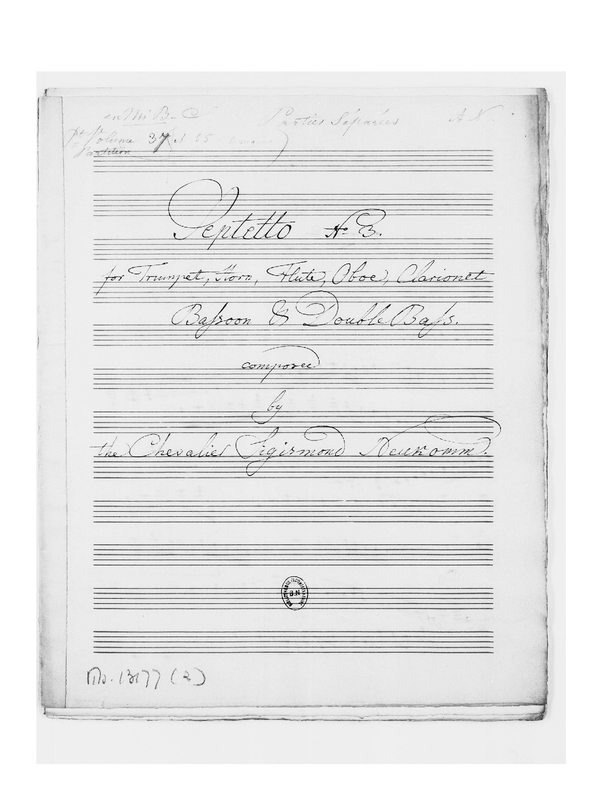 en Mi B
Parties Séparées
A.N.
Volume 37
Partition
Septetto No 3.
for Trumpet, Horn, Flute, Oboe, Clarionet
Baſsoon & Double Baſs.
composed
by
the Chevalier Sigismond Neukomm.
B.N
Ms. 13177 (2)